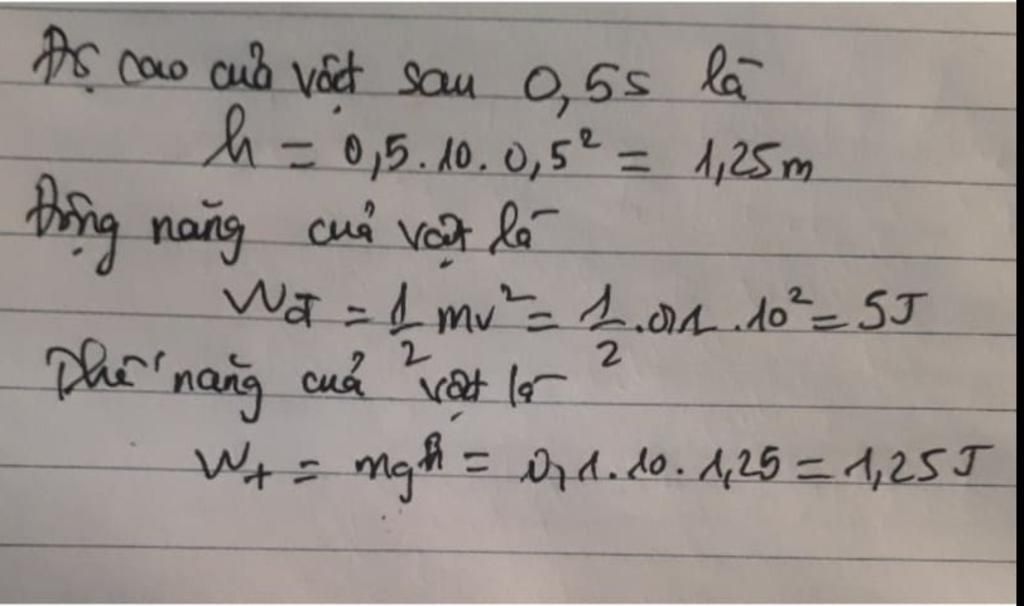 Độ cao của vật sau 0,5s là
h = 0,5.10.0,5² = 1,25m
Động năng của vật là
Wđ = 1/2 mv² = 1/2 .0,1 .10² = 5J
Thế năng của vật là
Wt = mgh = 0,1.10.1,25 = 1,25J